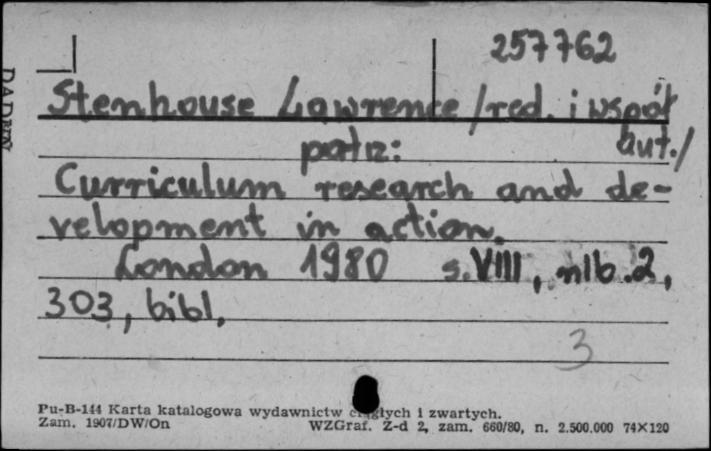 257762
Stenhouse Lawrence /red. i współ
aut./
patrz:
Curriculum research and de-
velopment in action.
London 1980 s.VIII, nlb.2,
303, bibl.
3
Pu-B-144 Karta katalogowa wydawnictw ciągłych i zwartych.
Zam. 1907/DW/On WZGraf. Z-d 2, zam. 660/80, n. 2.500.000 74×120